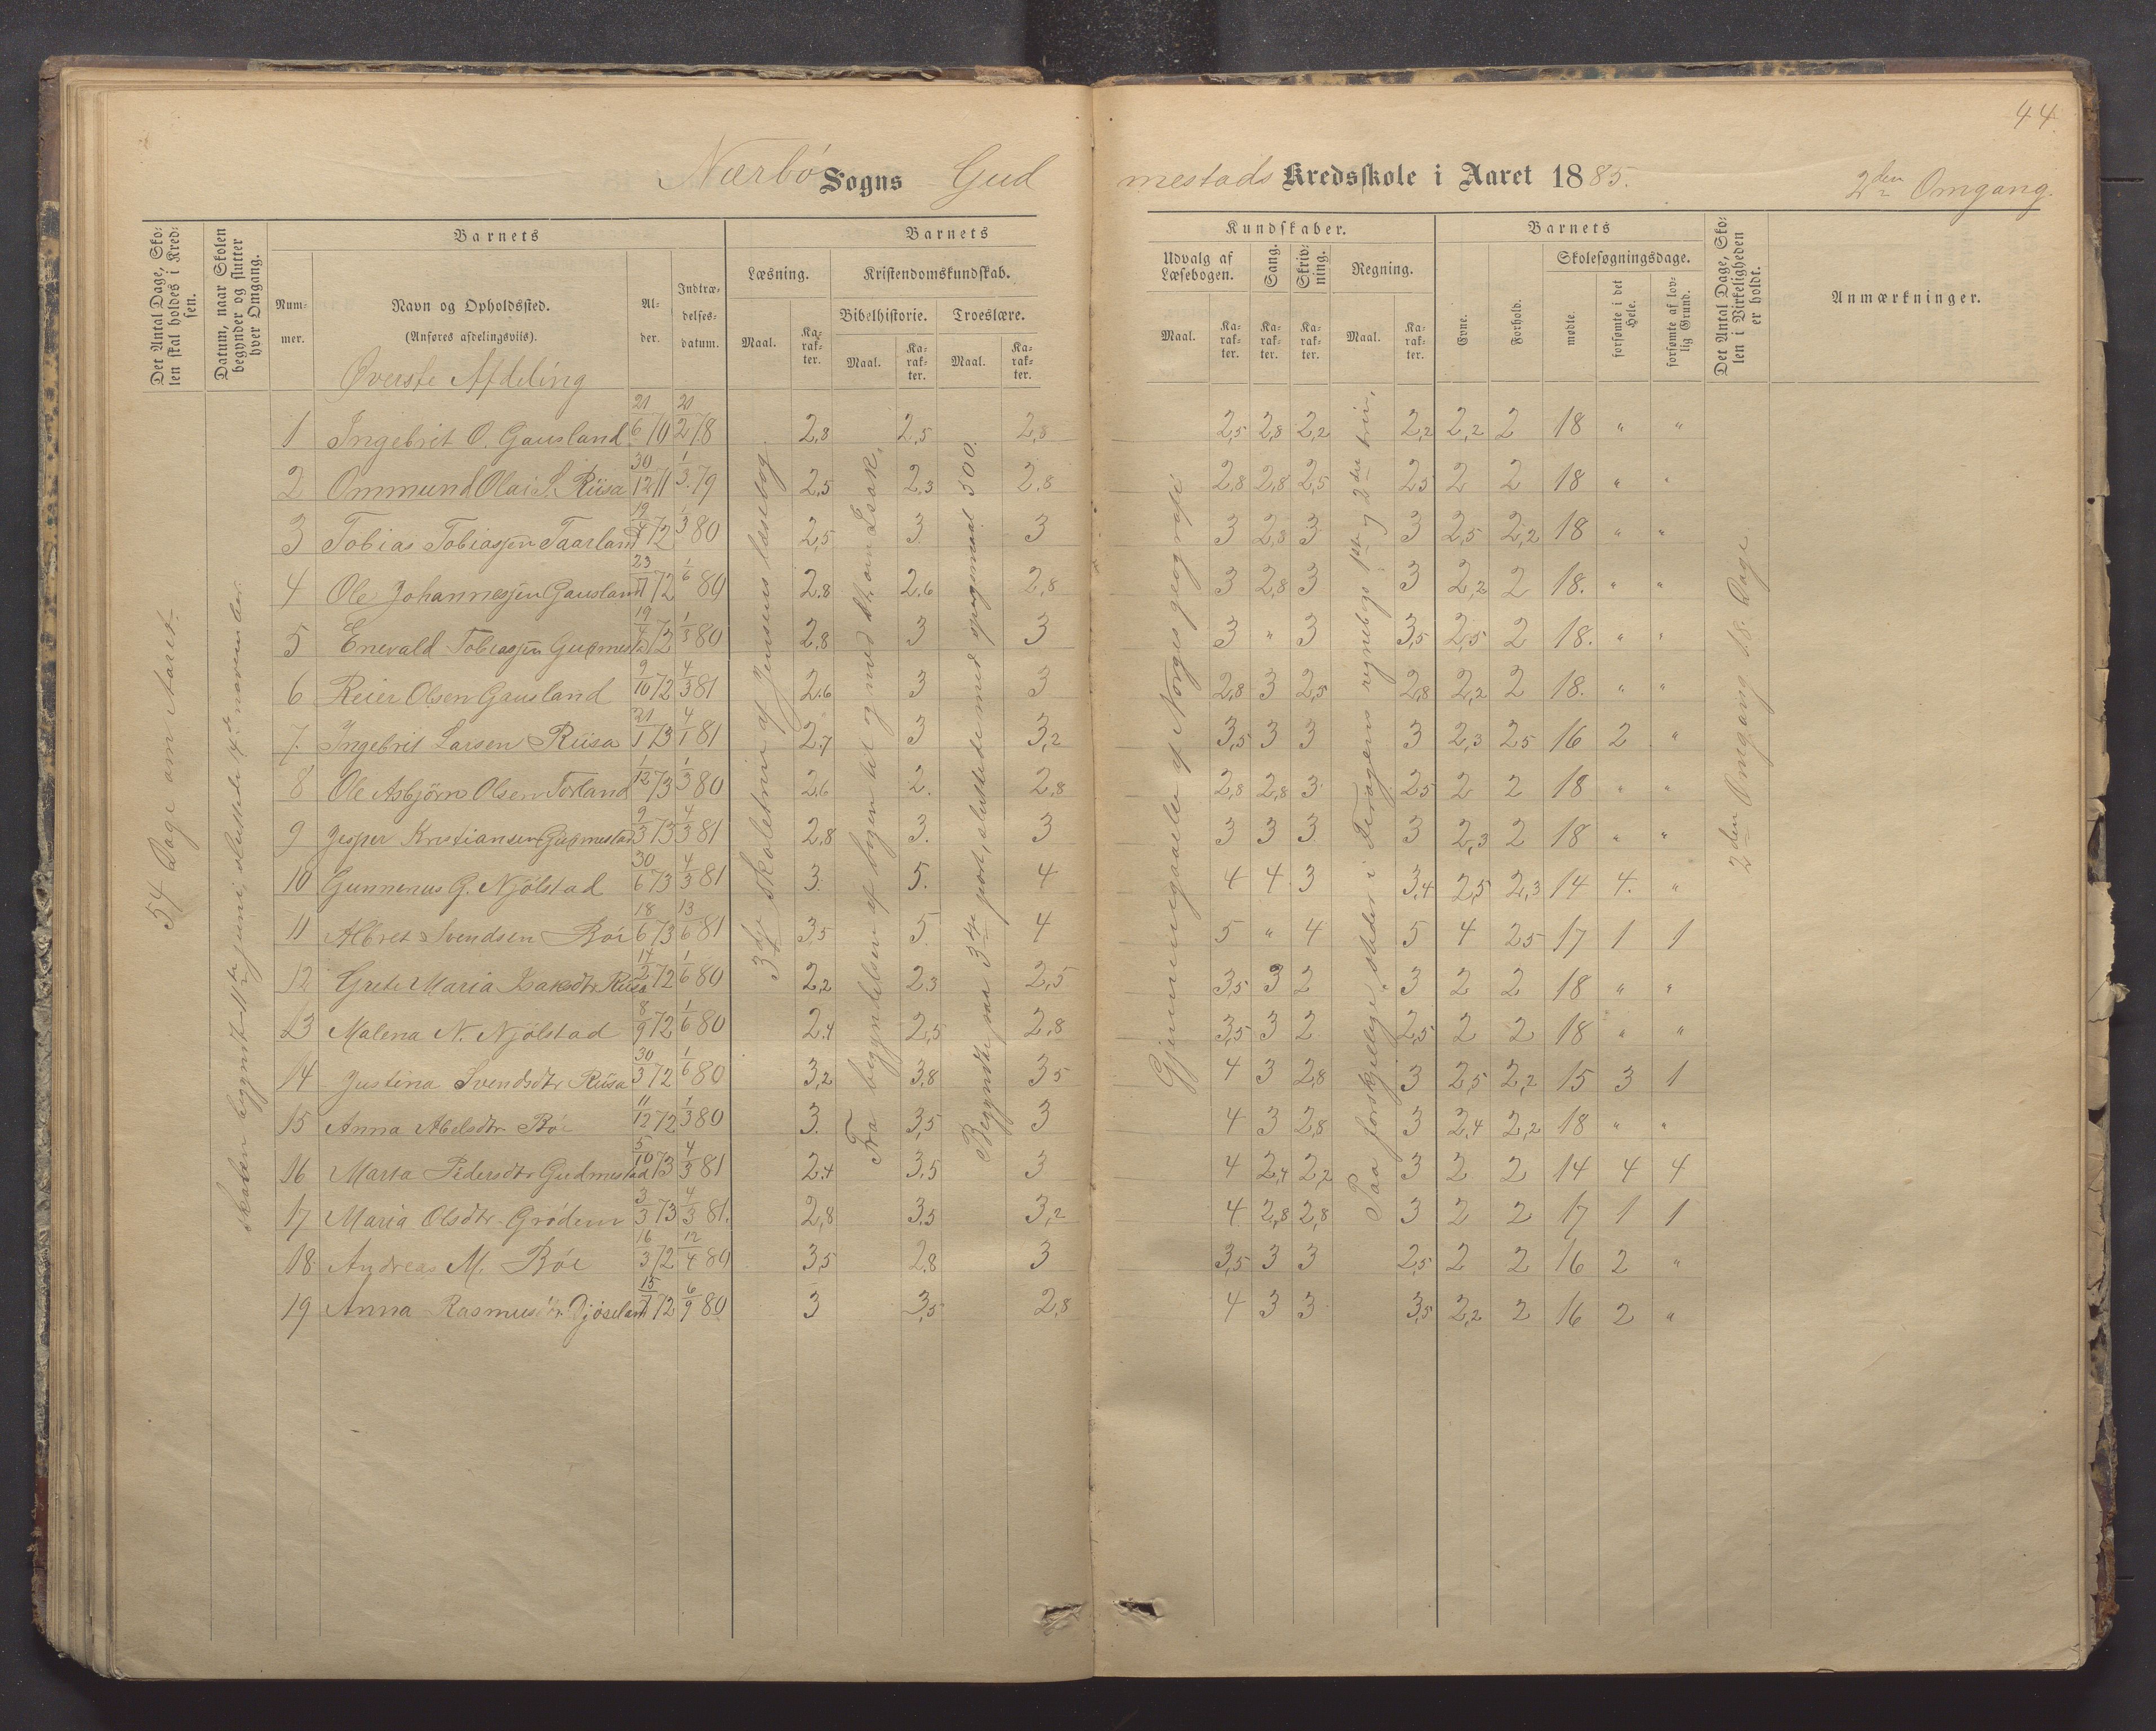 44.
Nærbö Sogns Gudmestads Kredsskole i Aaret 1885. 2den Omgang.
Det Antal Dage, Skolen skal holdes i Kredsen.
Datum, naar Skolen begynder og slutter hver Omgang.
Barnets
Nummer.
Navn og Opholdssted.
(Anføres afdelingsviis).
Alder.
Indtrædelsesdatum.
Barnets Kundskaber.
Læsning.
Maal. Karakter.
Kristendomskundskab.
Bibelhistorie. Troeslære.
Maal. Karakter. Maal. Karakter.
Udvalg af Læsebogen.
Maal. Karakter.
Sang. Karakter.
Skrivning. Karakter.
Regning.
Maal. Karakter.
Barnets
Evne. Forhold.
Skolesøgningsdage.
mødte. forsømte i det Hele. forsømte af lovlig Grund.
Det Antal Dage, Skolen i Virkeligheden er holdt.
Anmærkninger.
Øverste Afdeling
54 Dage om Aaret.
3die Skoletrin af Jensens læsebog.
Fra begyndelsen af bogen til og med
Gjennemgaaelse af Norges geografi
Paa forskjellige steder i
2den Omgang 18 Dage
1 Ingebrit O. Gausland 21/6 70 21/2 78 2,8 2,5 2,8 2,5 2,8 2,2 2,2 2,2 2 18 " "
2 Ommund Olai S. Riisa 30/12 71 1/3 79 2,5 2,3 2,8 2,8 2,8 2,5 2,5 2 2 18 " "
3 Tobias Tobiassen Taarland 19/4 72 1/3 80 2,5 3 3 3 2,8 3 3 2,5 2,2 18 " "
4 Ole Johannessen Gausland 23/11 72 1/6 80 2.8 2.6 2,8 3 2,8 3 3 2,2 2 18. " "
5 Enevald Tobiassen Gudmestad 19/4 72 1/3 80 2,8 3 3 3 " 3 3,5 2,5 2 18. " "
6 Reier Olsen Gausland 9/10 72 4/3 81 2.6 3 3 2,8 3 2,5 2,8 2,2 2 18. " "
7. Ingebrit Larsen Riisa 21/1 73 4/1 81 2,7 3 3,2 3,5 3 3 3 2,3 2,5 16 2 "
8 Ole Asbjörn Olsen Torland 1/12 73 1/3 80 2.6 2. 2,8 2,8 2,8 3 2,5 2 2 18 " "
9 Jesper Kristiansen Gudmestad 9/3 73 4/3 81 2,8 3. 3 3 3 3 3 2,3 2 18 " "
10 Gunnerus G. Njölstad 30/6 73 4/3 81 3. 5. 4 4 4 3 3,4 2,5 2,3 14 4. "
11 Albret Svendsen Böe 18/6 73 13/6 81 3,5 5 4 5 " 4 5 4 2,5 17 1 1
12 Grete Maria Isaksdtr Riisa 14/2 72 1/6 80 2,2 2,3 2,5 3,5 3 2 3 2 2 18 " "
13 Malena N. Njölstad 8/9 72 1/6 80 2.4 2,5 2,8 3,5 3 2 2,5 2 2 18 " "
14 Justina Svendsdtr Riisa 30/3 72 1/6 80 3,2 3,8 3,5 4 3 2,8 3 2,5 2,2 15 3 1
15 Anna Abelsdtr Böe 11/12 72 1/3 80 3. 3,5 3 4 3 2,8 3 2,4 2,2 18 " "
16 Marta Pedersdtr Gudmestad 5/10 73 4/3 81 2.4 3,5 3 4 2,4 2,2 3 2 2 14 4 4
17 Maria Olsdtr Grödem 3/3 73 4/3 81. 2,8 3,5 3,2 4 2,8 2,8 3 2 2 17 1 1
18. Andreas M. Böe 16/3 72 12/4 80 3,5 2,8 3 3,5 3 3 2,5 2 2 16 2 "
19 Anna Rasmusdtr. 15/7 72 6/9 80 3 3,5 2,8 4 3 3 3,5 2,2 2 16 2 "